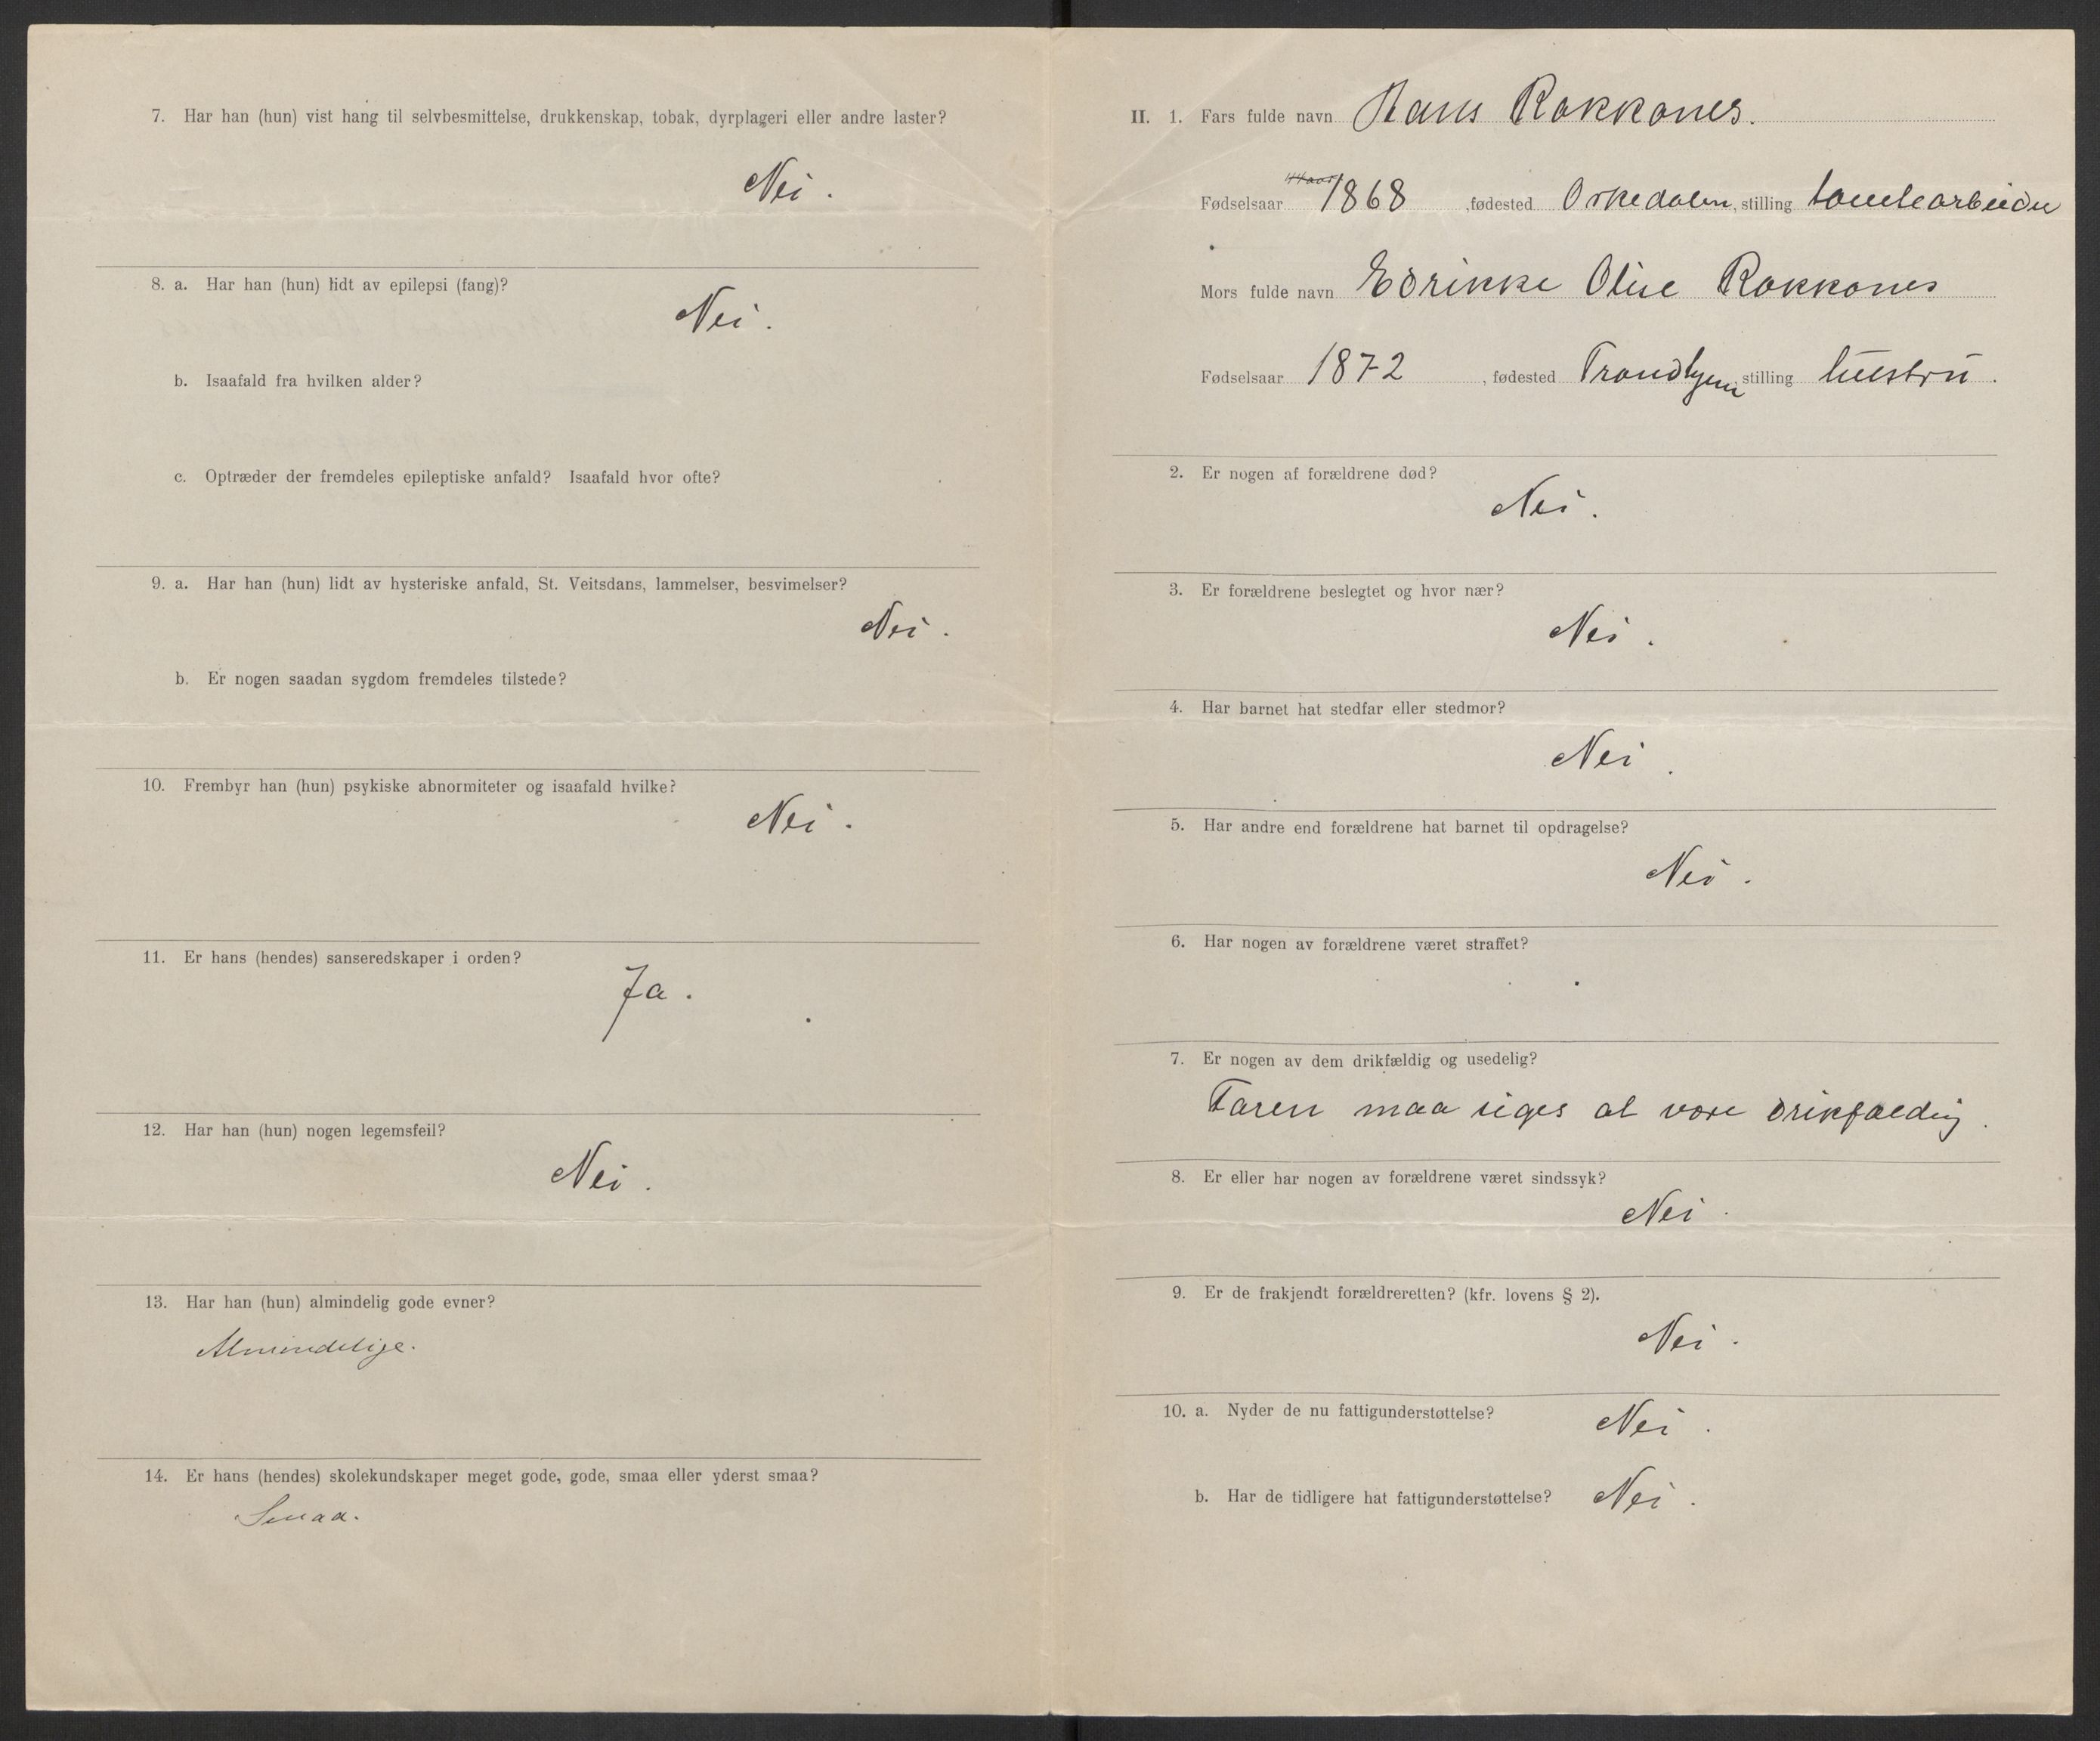 7. Har han (hun) vist hang til selvbesmittelse, drukkenskap, tobak, dyrplageri eller andre laster?
Nei.
8. a. Har han (hun) lidt av epilepsi (fang)?
Nei.
b. Isaafald fra hvilken alder?
c. Optræder der fremdeles epileptiske anfald? Isaafald hvor ofte?
9. a. Har han (hun) lidt av hysteriske anfald, St. Veitsdans, lammelser, besvimelser?
Nei.
b. Er nogen saadan sygdom fremdeles tilstede?
10. Frembyr han (hun) psykiske abnormiteter og isaafald hvilke?
Nei.
11. Er hans (hendes) sanseredskaper i orden?
Ja.
12. Har han (hun) nogen legemsfeil?
Nei.
13. Har han (hun) almindelig gode evner?
Almindelige.
14. Er hans (hendes) skolekundskaper meget gode, gode, smaa eller yderst smaa?
Smaa.
II. 1. Fars fulde navn Hans Rokkones.
Fødselsaar 1868, fødested Orkedalen, stilling tomtearbeider
Mors fulde navn Edrikke Oline Rokkones
Fødselsaar 1872, fødested Trondhjem, stilling hustru.
2. Er nogen af forældrene død?
Nei.
3. Er forældrene beslegtet og hvor nær?
Nei.
4. Har barnet hat stedfar eller stedmor?
Nei.
5. Har andre end forældrene hat barnet til opdragelse?
Nei.
6. Har nogen av forældrene været straffet?
7. Er nogen av dem drikfældig og usedelig?
Faren maa siges at være drikfældig.
8. Er eller har nogen av forældrene været sindssyk?
Nei.
9. Er de frakjendt forældreretten? (kfr. lovens § 2).
Nei.
10. a. Nyder de nu fattigunderstøttelse? Nei.
b. Har de tidligere hat fattigunderstøttelse? Nei.